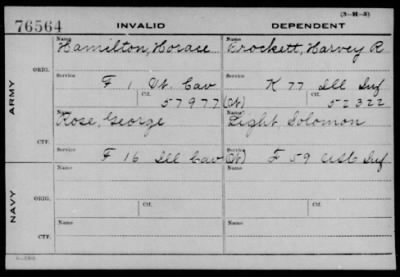 (3-H-3)
76564 INVALID DEPENDENT
Name Name
Hamilton, Horace Crockett, Harvey R
ORIG.
Service Service
F 1 Vt. Cav K 77 Ill Inf
Ctf. Ctf.
57977 (N) 52322
ARMY
Name Name
Rose, George Light, Solomon
CTF.
Service Service
F 16 Ill Cav (N) F 59 USC Inf
Name Name
ORIG.
Service Ctf. Service Ctf.
NAVY
Name Name
CTF.
Service Service